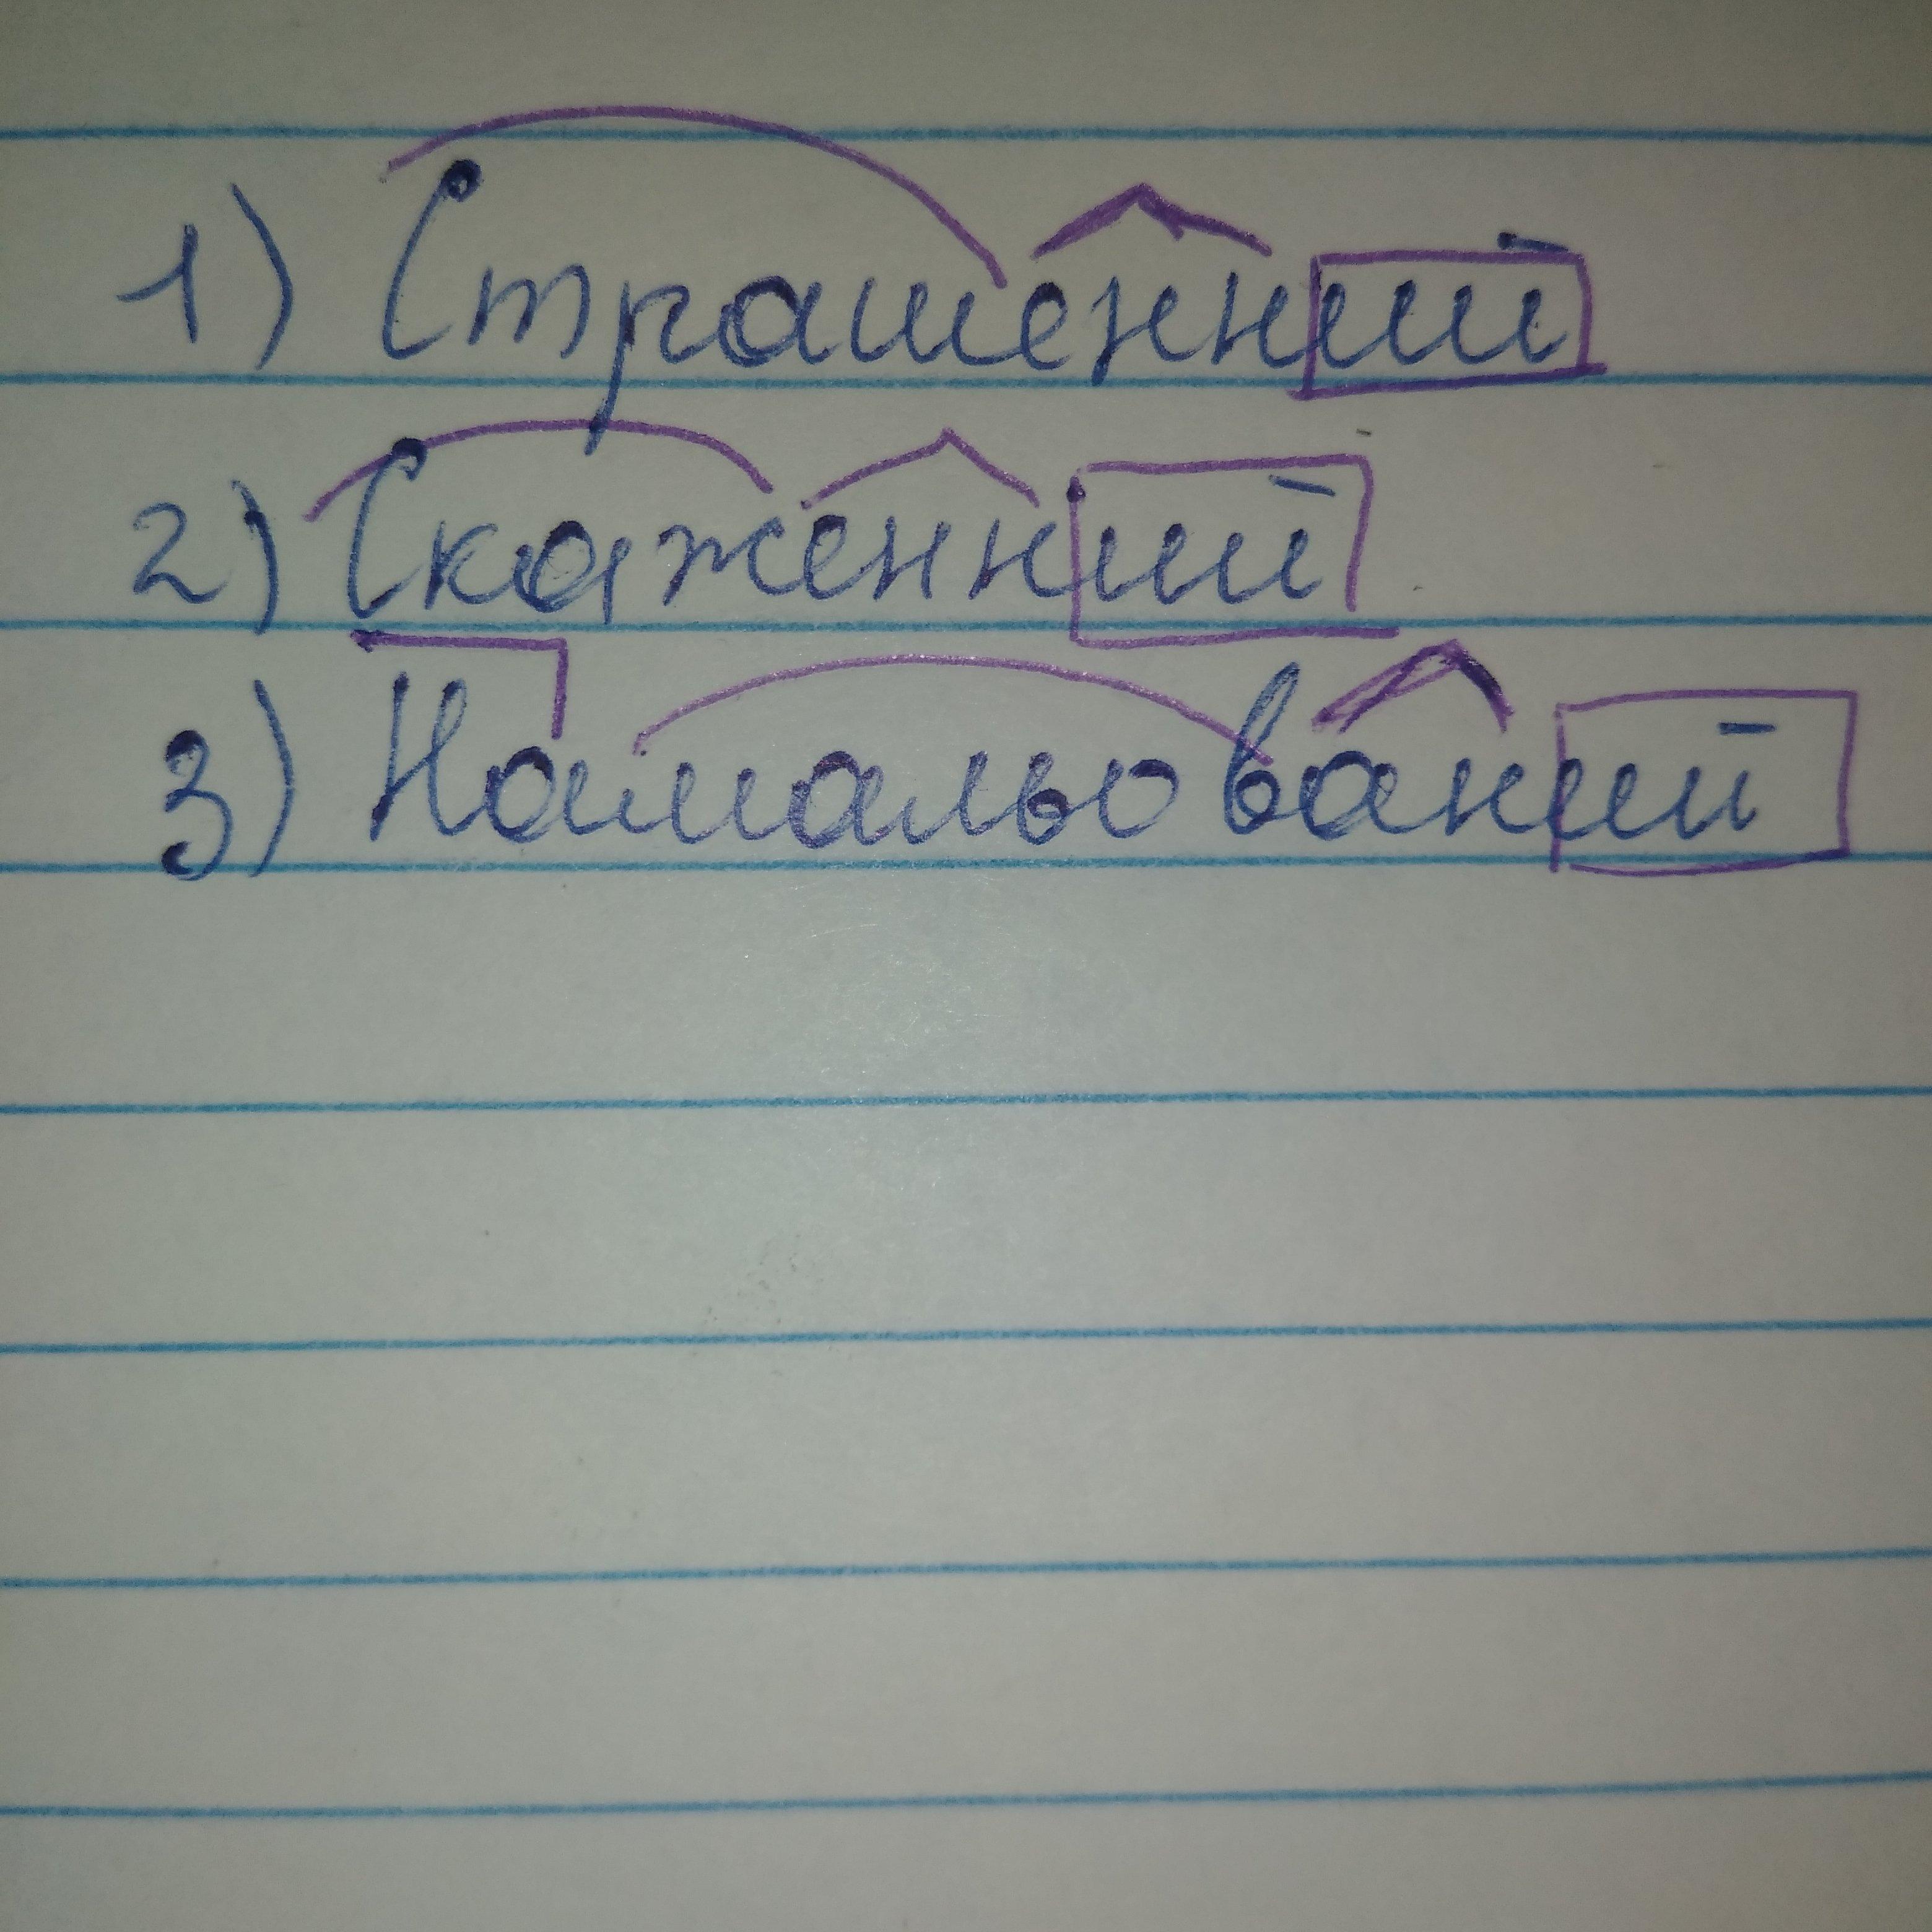 1) Страшенний
2) Скаженний
3) Намальований